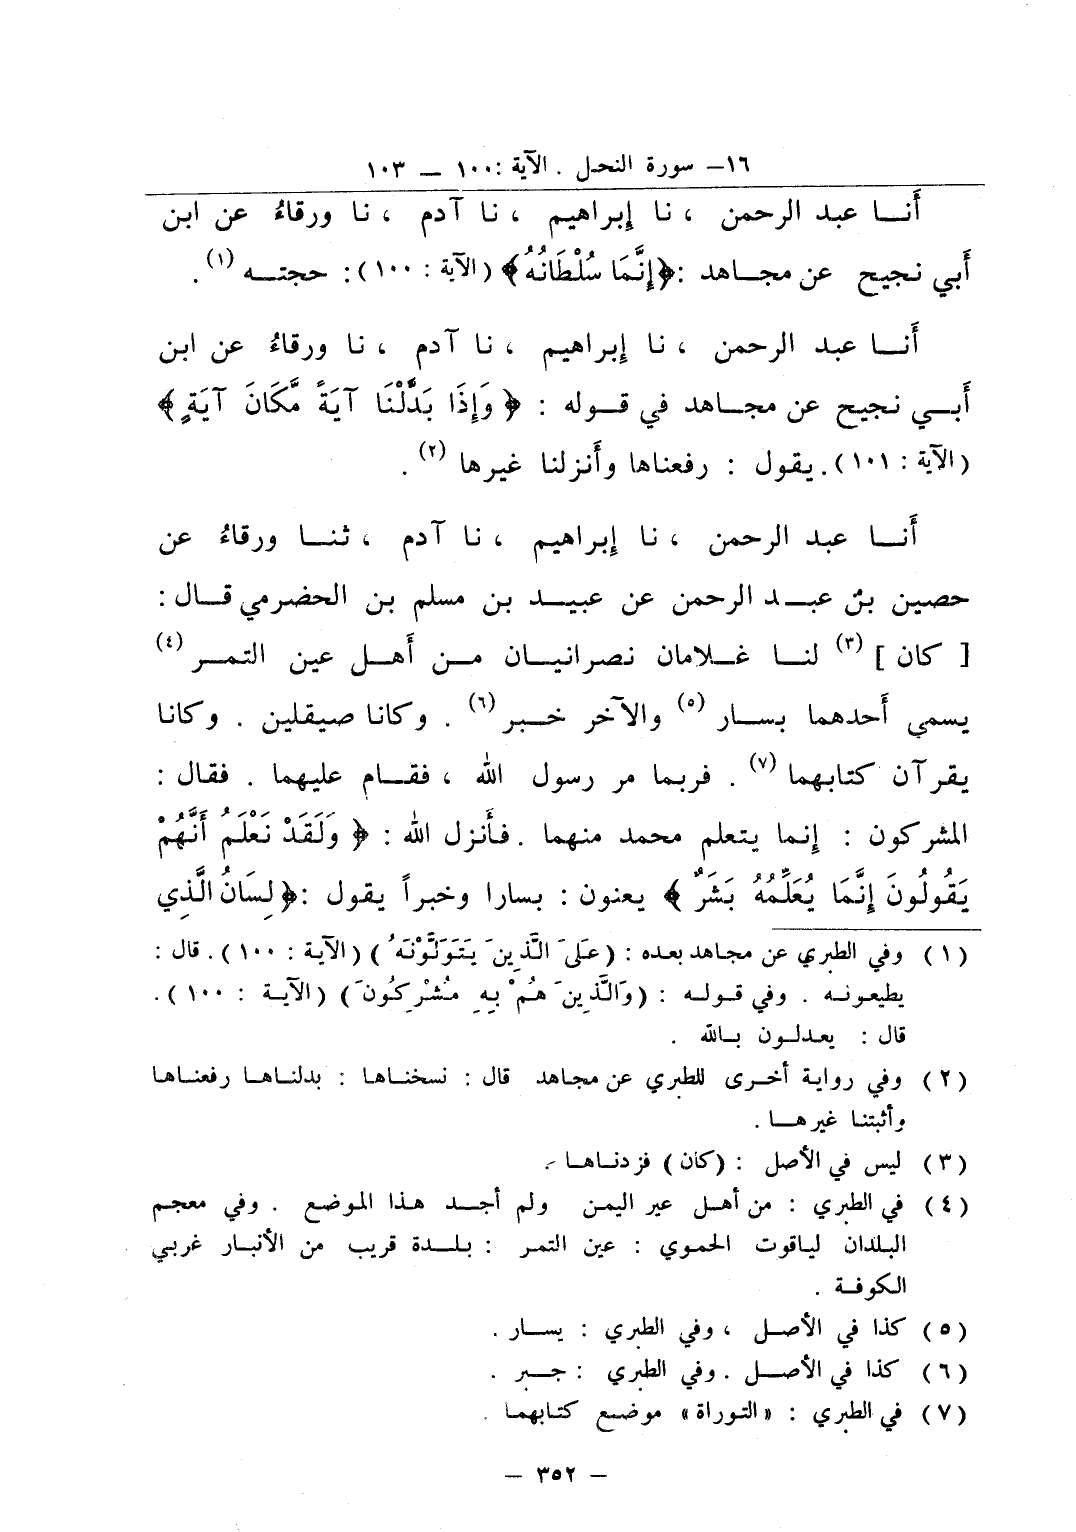 ١٦– سورة النحل . الآية :١٠٠ – ١٠٣
أَنا عبد الرحمن ، نا إبراهيم ، نا آدم ، نا ورقاءُ عن ابن
أَبي نجيح عن مجاهد :﴿إِنَّمَا سُلْطَانُهُ﴾ (الآية : ١٠٠): حجته (١) .
أَنا عبد الرحمن ، نا إبراهيم ، نا آدم ، نا ورقاءُ عن ابن
أَبي نجيح عن مجاهد في قوله : ﴿ وَإِذَا بَدَّلْنَا آيَةً مَّكَانَ آيَةٍ ﴾
(الآية : ١٠١). يقول : رفعناها وأَنزلنا غيرها (٢) .
أَنا عبد الرحمن ، نا إبراهيم ، نا آدم ، ثنا ورقاءُ عن
حصين بن عبد الرحمن عن عبيد بن مسلم بن الحضرمي قال :
[ كان ] (٣) لنا غلامان نصرانيان من أَهل عين التمر (٤)
يسمى أَحدهما بسار (٥) والآخر خبر (٦) . وكانا صيقلين . وكانا
يقرآن كتابهما (٧) . فربما مر رسول الله ، فقام عليهما . فقال :
المشركون : إنما يتعلم محمد منهما . فأَنزل الله : ﴿ وَلَقَدْ نَعْلَمُ أَنَّهُمْ
يَقُولُونَ إِنَّمَا يُعَلِّمُهُ بَشَرٌ ﴾ يعنون : بسارا وخبراً يقول :﴿لِسَانُ الَّذِي
(١) وفي الطبري عن مجاهد بعده : (عَلَىَ الَّذِينَ يَتَوَلَّوْنَهُ) (الآية : ١٠٠). قال :
يطيعونه . وفي قوله : (وَالَّذِينَ هُمْ بِهِ مُشْرِكُونَ) (الآية : ١٠٠).
قال : يعدلون بالله .
(٢) وفي رواية أخرى للطبري عن مجاهد قال : نسخناها : بدلناها رفعناها
وأثبتنا غيرها .
(٣) ليس في الأصل : (كان) فزدناها .
(٤) في الطبري : من أهل عير اليمن ولم أجد هذا الموضع . وفي معجم
البلدان لياقوت الحموي : عين التمر : بلدة قريب من الأنبار غربي
الكوفة .
(٥) كذا في الأصل ، وفي الطبري : يسار .
(٦) كذا في الأصل . وفي الطبري : جبر .
(٧) في الطبري : «التوراة» موضع كتابهما .
– ٣٥٢ –